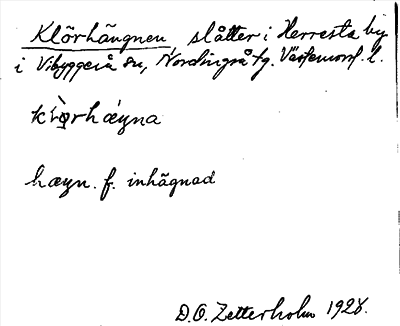 Klörhängnen, slåtter i Herresta by
i Vibyggerå sn, Nordingrå tg. Västernorrl. l.
hæyn. f. inhägnad
D.O. Zetterholm 1928.